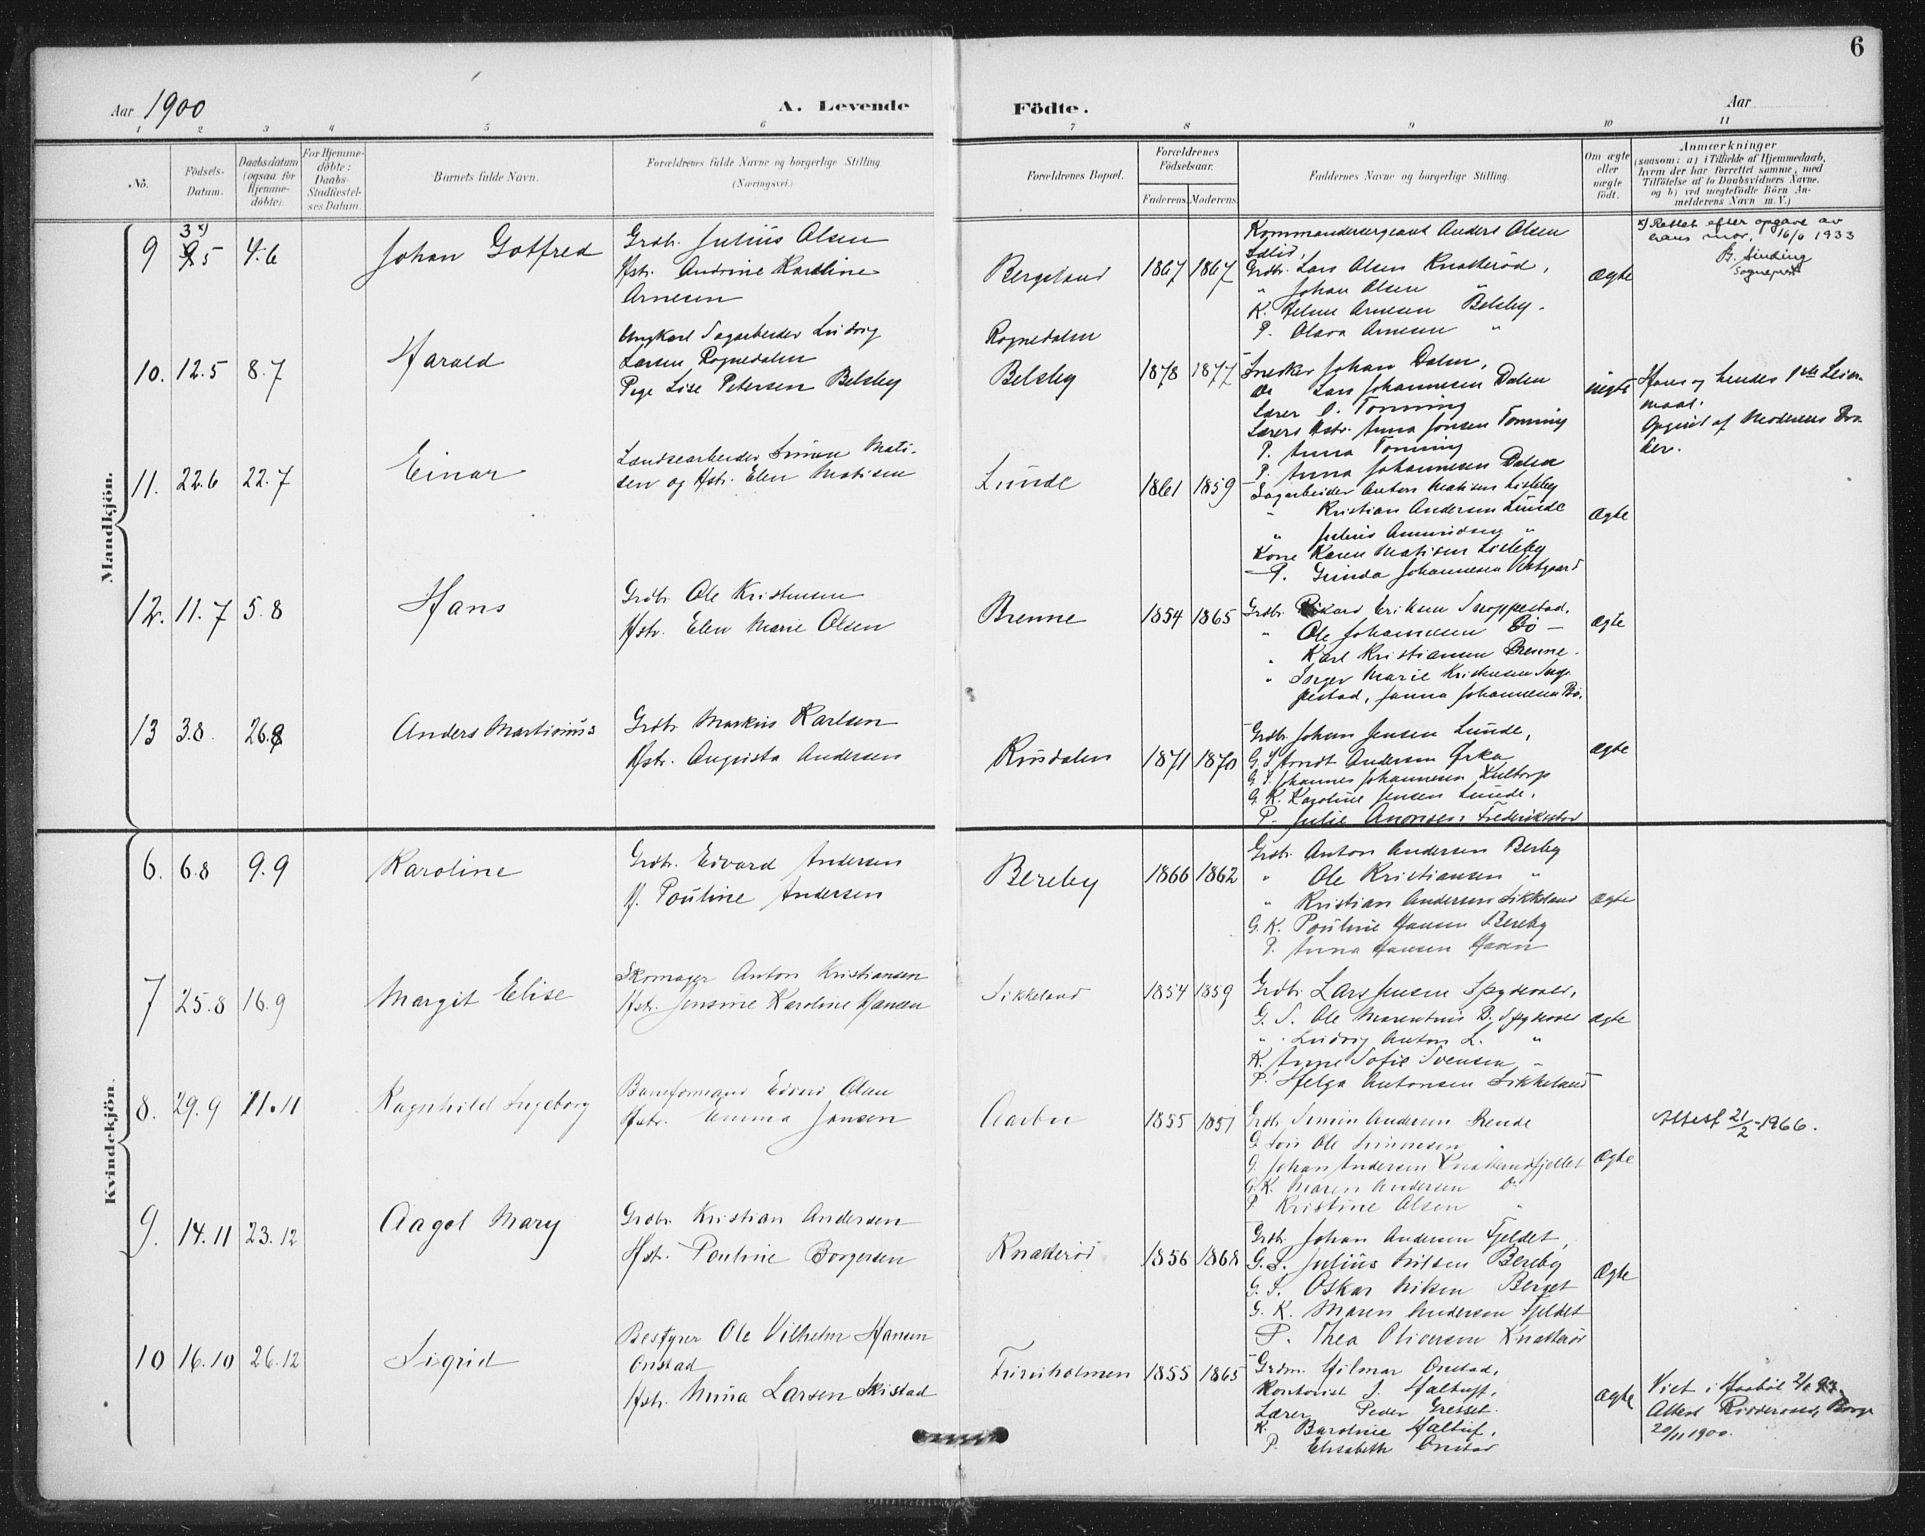 6
Aar 1900
A. Levende
Födte.
Aar
1 2 3 4 5 6 7 8 9 10 11
No.
Födsels-
Datum.
Daabsdatum
(ogsaa for
Hjemme-
döbte).
For Hjemme-
döbte:
Daabs-
Stadfæstel-
ses Datum.
Barnets fulde Navn.
Forældrenes fulde Navne og borgerlige Stilling
(Næringsvei.)
Forældrenes Bopæl.
Forældrenes
Födselsaar.
Faderens.
Moderens.
Faddernes Navne og borgerlige Stilling.
Om ægte
eller
uægte
födt.
Anmærkninger
(saasom: a) i Tilfælde af Hjemmedaab,
hvem der har forrettet samme, med
Tilföielse af to Daabsvidners Navne.
og b) ved uægtefödte Börn An-
melderens Navn m. V.)
Mandkjön.
9 3 x) 5 4.6 Johan Gotfred
Grdbr. Julius Olsen
Hstr. Andrine Karoline
Arnesen
Bergsland 1867 1867
Kommandersergeant Anders Olsen
Grdbr. Lars Olsen Knatterød,
" Johan Olsen "
K. Helene Arnesen Belsby.
P. Olava Arnesen "
Ægte
x) Rettet efter opgave av
hans mor, 16/6 1933
B. Sinding
Sogneprest
10. 12.5 8.7 Harald
Ungkarl Sagarbeider Ludvig
Larsen Rognedalen
Pige Lise Petersen Belsby
Rognedalen
Belsby 1878 1877
Snedker Johan Dalen,
Do Lars Johannesen Dalen
Lærer O. Tonning
Lærers Hstr. Anna Jonsen Tonning
P. Anna Tonning
P. Anna Johannesen Dalen
uægte
Hans og hendes 1ste Leier-
maal.
Opgivet af Moderens Bro-
der.
11. 22.6 22.7 Einar
Landsearbeider Simen Mati-
sen og Hstr. Elen Matisen
Lunde 1861 1859
Sagarbeider Anton Matisen Lisleby
" Kristian Andersen Lunde
" Julius Amundsen "
Kone Karen Matisen Lisleby
P. Gunda Johannesen Vestgaard
Ægte
12. 11.7 5.8 Hans
Grdbr. Ole Kristensen
Hstr. Elen Marie Olsen
Brenne 1854 1865
Grdbr. Rikard Eriksen Snoppestad.
" Ole Johannesen Bö
" Karl Kristiansen Brenne.
" Inger Marie Kristensen Snop-
pestad, Janna Johannesen Bö.
Ægte
13 3.8. 26.8 Anders Martinius
Grdbr. Markus Karlsen
Hstr. Augusta Andersen
Rusdalen 1871 1870
Grdbr. Johan Jensen Lunde,
G. S. Arndt Andersen Ørka
G. S. Johannes Johannesen Kultorp
G. K. Karoline Jensen Lunde,
P. Julie Fredrikstad
Ægte
Kvindekjön.
6. 6.8 9.9 Karoline
Grdbr. Edvard Andersen
H. Pouline Andersen
Bereby 1866 1862
Grdbr. Anton Andersen Berby
" Ole Kristiansen "
" Kristian Andersen Sikkeland
G. K. Pouline Hansen Bereby
P. Anna Hansen Haven
Ægte
7 25.8 16.9 Margit Elise
Skomager Anton Kristiansen
Hstr. Jensine Karoline Hansen
Sikkeland 1854 1859
Grdbr. Lars Jensen Spydevold,
G. S. Ole Marentius B. Spydevold
" Ludvig Anton L. "
K. Anne Sofie Svensen "
P. Helga Antonsen Sikkeland
Ægte
8. 29.9 11.11 Ragnhild Ingeborg
Baneformand Edvard Olsen
Hstr. Emma Jensen
Aarbu 1855 1857
Grdbr. Simen Andersen
G. Søn Ole Simensen "
G. Johan Andersen Knatterødfjellet
G. K. Maren Andersen Do
P. Kristine Olsen "
Ægte
Attest 21/2-1966.
9. 14.11 23.12 Aagot Mary
Grdbr. Kristian Andersen
Hstr. Pouline Borgersen
Knatterød 1856 1868
Grdbr. Johan Andersen Fjeldet,
G. S. Julius Nilsen Bereby
G. S. Oskar Nilsen Berget
G. K. Maren Andersen Fjeldet
P. Thea Oliversen Knatterød
Ægte
10 16.10 26.12 Sigrid
Bestyrer Ole Vilhelm Hansen
Onstad
Hstr. Anna Larsen Skistad
Furuholmen 1855 1865
Grdm. Hilmar Onstad,
Kontorist J. Haltuf,
Lærer Peder Gresset.
K. Baroline Haltuf.
P. Elisabeth Onstad
Ægte
Viet i
20/11 1900.